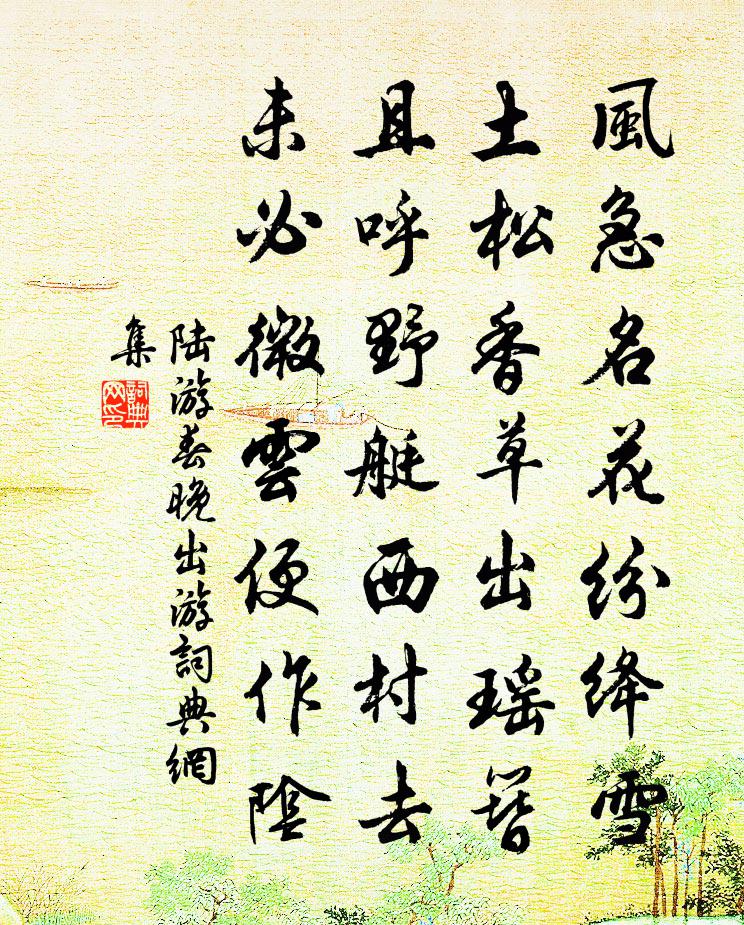 風急名花紛絳雪
土松香草出瑶簪
且呼野艇西村去
未必微雲便作陰
陆游春晚出游詞典網
集
詞典
网印